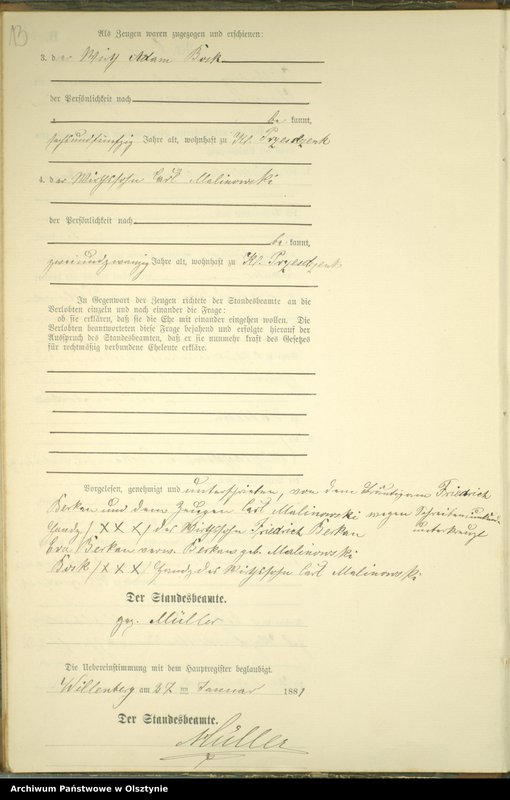 13
Als Zeugen waren zugezogen und erschienen:
3. der Wirth Adam Bock
der Persönlichkeit nach
be kannt,
sechsundfünfzig Jahre alt, wohnhaft zu Kl. Przesdzenk
4. der Wirthssohn Carl Malinowski
der Persönlichkeit nach
be kannt,
zweiundzwanzig Jahre alt, wohnhaft zu Kl. Przesdzenk
In Gegenwart der Zeugen richtete der Standesbeamte an die
Verlobten einzeln und nach einander die Frage:
ob sie erklären, daß sie die Ehe mit einander eingehen wollen. Die
Verlobten beantworteten diese Frage bejahend und erfolgte hierauf der
Ausspruch des Standesbeamten, daß er sie nunmehr kraft des Gesetzes
für rechtmäßig verbundene Eheleute erkläre.
Vorgelesen, genehmigt und unterschrieben, von dem Bräutigam Friedrich
Berkan und dem Zeugen Carl Malinowski wegen Schreibensunkunde
unterkreuzt
Handz. XXX des Wirthssohn Friedrich Berkan
Eva Berkan verw. Berkan geb. Malinowski
Bock XXX Handz. des Wirthssohn Carl Malinowski
Der Standesbeamte.
gez. Müller
Die Uebereinstimmung mit dem Hauptregister beglaubigt.
Willenberg am 27 ten Januar 1881
Der Standesbeamte.
Müller
Archiwum Państwowe w Olsztynie